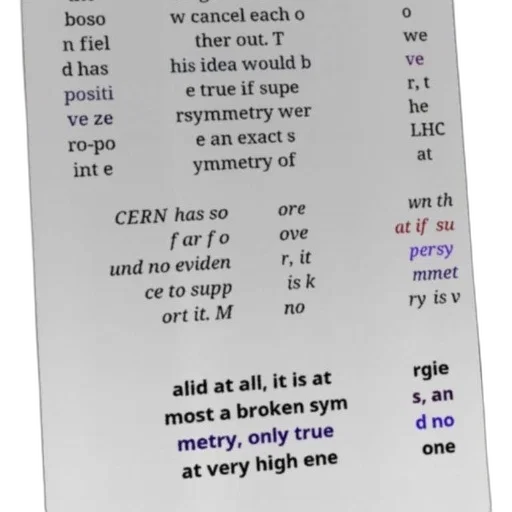 boso
n fiel
d has
positi
ve ze
ro-po
int e
w cancel each o
ther out. T
his idea would b
e true if supe
rsymmetry wer
e an exact s
ymmetry of
o
we
ve
r, t
he
LHC
at
CERN has so
far fo
und no eviden
ce to supp
ort it. M
ore
ove
r, it
is k
no
wn th
at if su
persy
mmet
ry is v
alid at all, it is at
most a broken sym
metry, only true
at very high ene
rgie
s, an
d no
one